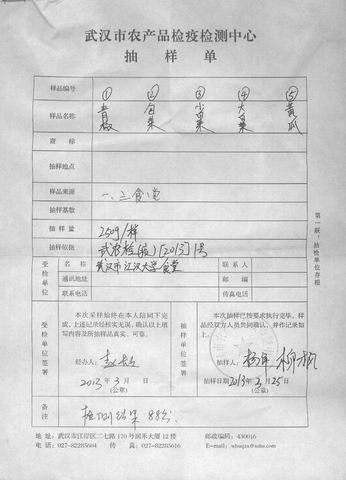 武汉市农产品检疫检测中心
抽样单
样品编号 ① ② ③ ④ ⑤
样品名称 青椒 包菜 小菜 大菜 黄瓜
商标
抽样地点
样品来源 一、二食堂
抽样基数
抽样量 250g/样
抽样依据 武农检(疫)[2013]1号
受检单位 武汉市江汉大学食堂 联系人
通讯地址 邮编
联系电话 传真电话
受检单位签署
本次采样始终在本人陪同下完成，上述记录经核实无误，确认以上填写内容及所抽样品真实、可靠。
经办人：
2013年3月 日
（公章）
抽样单位签署
本次抽样已按要求执行完毕，样品经双方人员共同确认，并作记录如上。
抽样人：
抽样日期2013年3月25日
（公章）
备注 检测结果88份
第一联：抽检单位存根
地址：武汉市江岸区二七路170号润禾大厦12楼 邮政编码：430016
电话：027-82285604 传真：027-82285616 E-mail：whnajzx@sohu.com